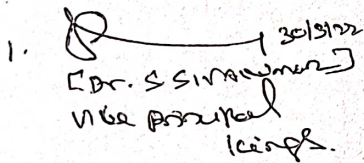 1. 30/3/22
[Dr. S SIVAKUMAR]
Vice principal
kings.